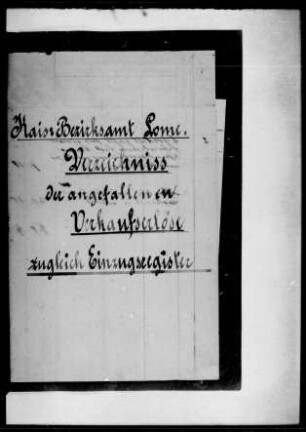 Kais. Bezirksamt Lome.
Verzeichniss
der angefallenen
Verkaufserlöse
zugleich Einzugsregister